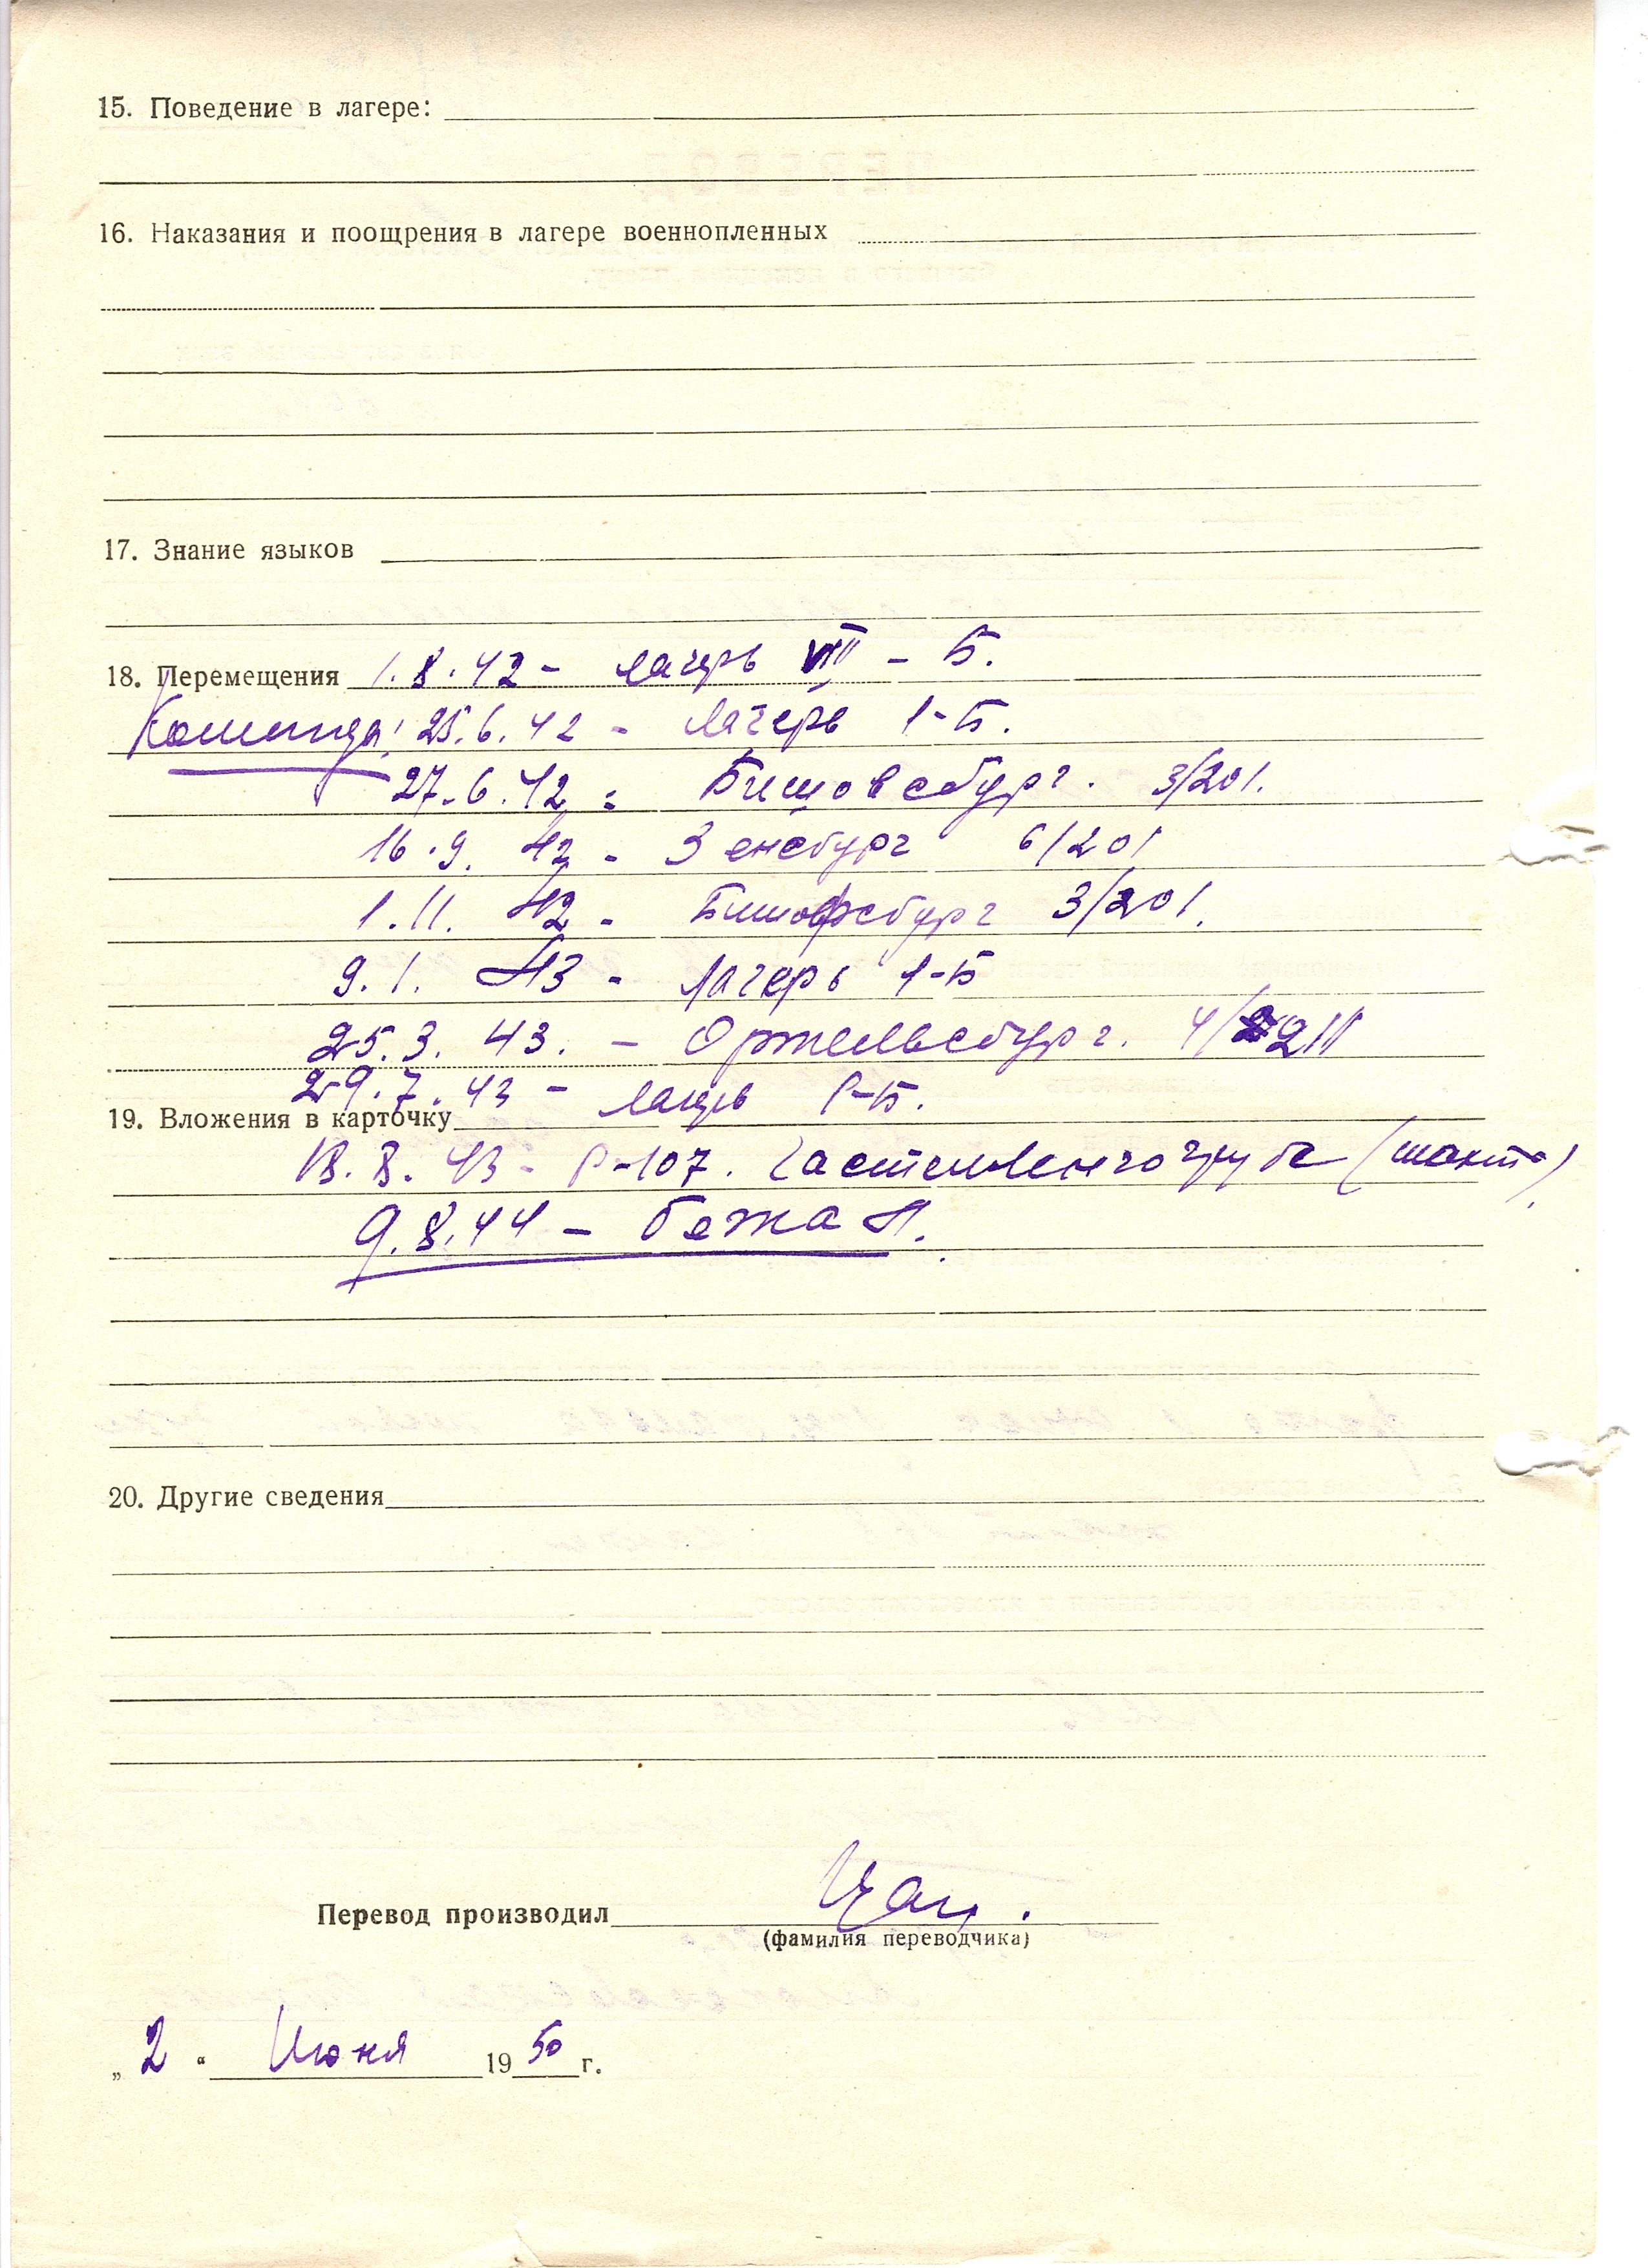 15. Поведение в лагере:
16. Наказания и поощрения в лагере военнопленных
17. Знание языков
18. Перемещения 1.8.42 - лагерь VIII - Б.
Команда: 25.6.42 - лагерь 1-Б.
27.6.42 - Бишовсбург. 3/201.
16.9.42 - Зенсбург 6/201
1.11.42 - Бишофсбург 3/201.
9.1.43 - Лагерь 1-Б
25.3.43. - Ортельсбург. 4/
29.7.43 - лагерь 1-Б.
19. Вложения в карточку
18.8.43 - Р-107. (шахта)
9.8.44 - бежал.
20. Другие сведения
Перевод производил
(фамилия переводчика)
„ 2 “ Июня 19 50 г.